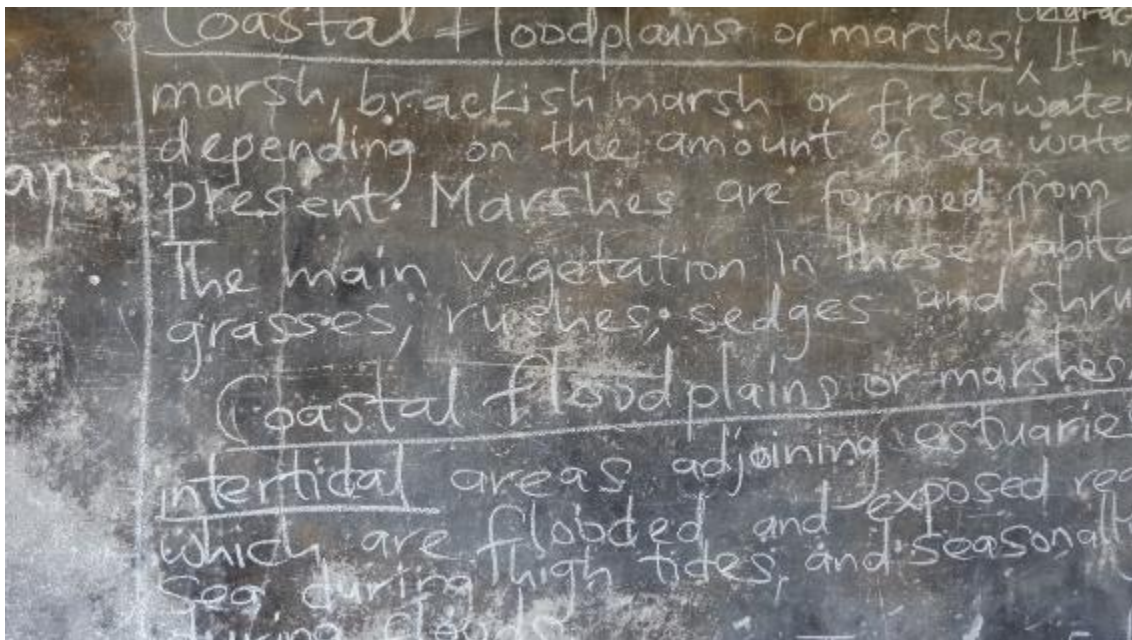 Coastal floodplains or marshes! It
marsh, brackish marsh or freshwater
depending on the amount of sea wate
aps
present. Marshes are formed from
The main vegetation in these habita
grasses, rushes, sedges and shru
Coastal floodplains or marshes
intertidal areas adjoining estuarie
which are flooded and exposed
sea during high tides, and seasonally
during floods